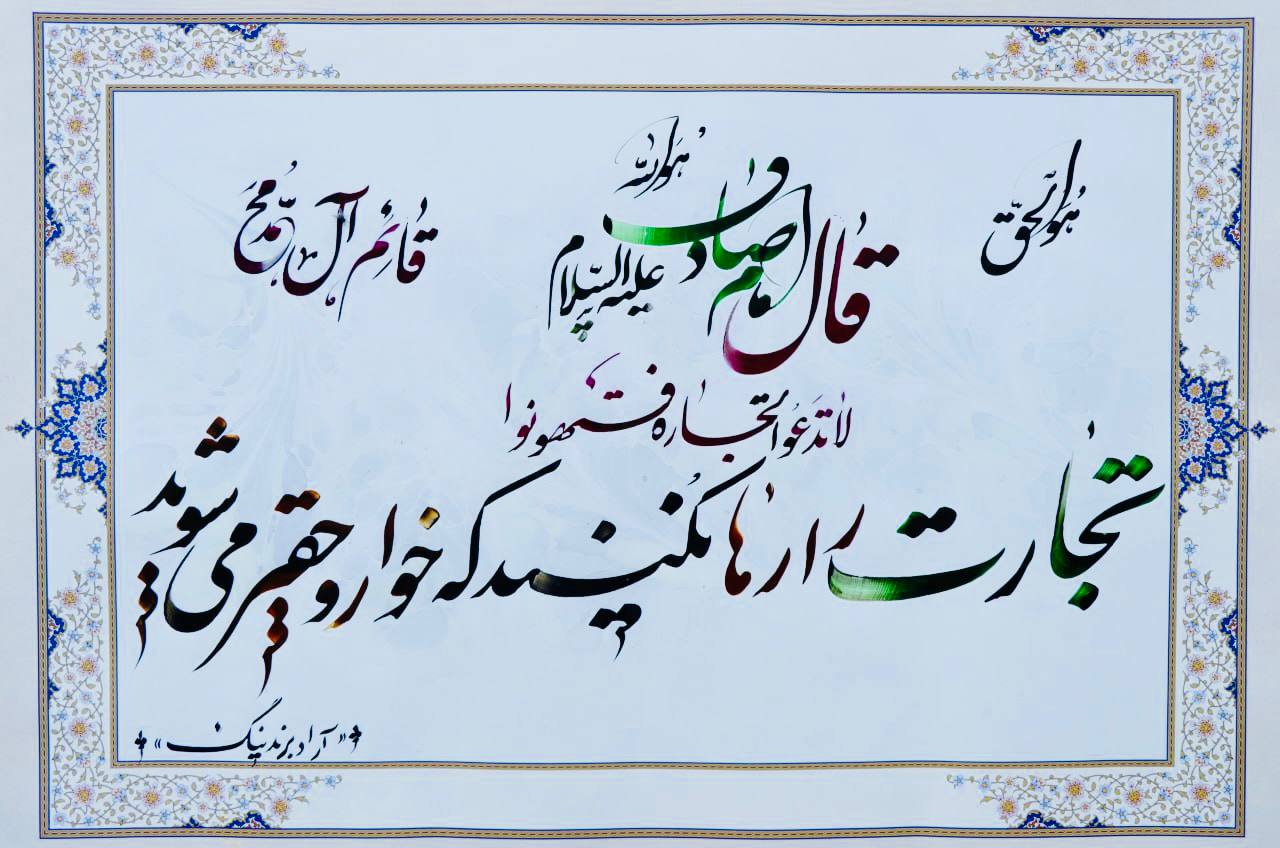 هوالله
هوالحق
قال امام صادق علیه السلام
قائم آل محمد
لا تدعوا التجاره فتهونوا
تجارت را رها نکنید که خوار و حقیر می شوید
«آراد برندینگ»